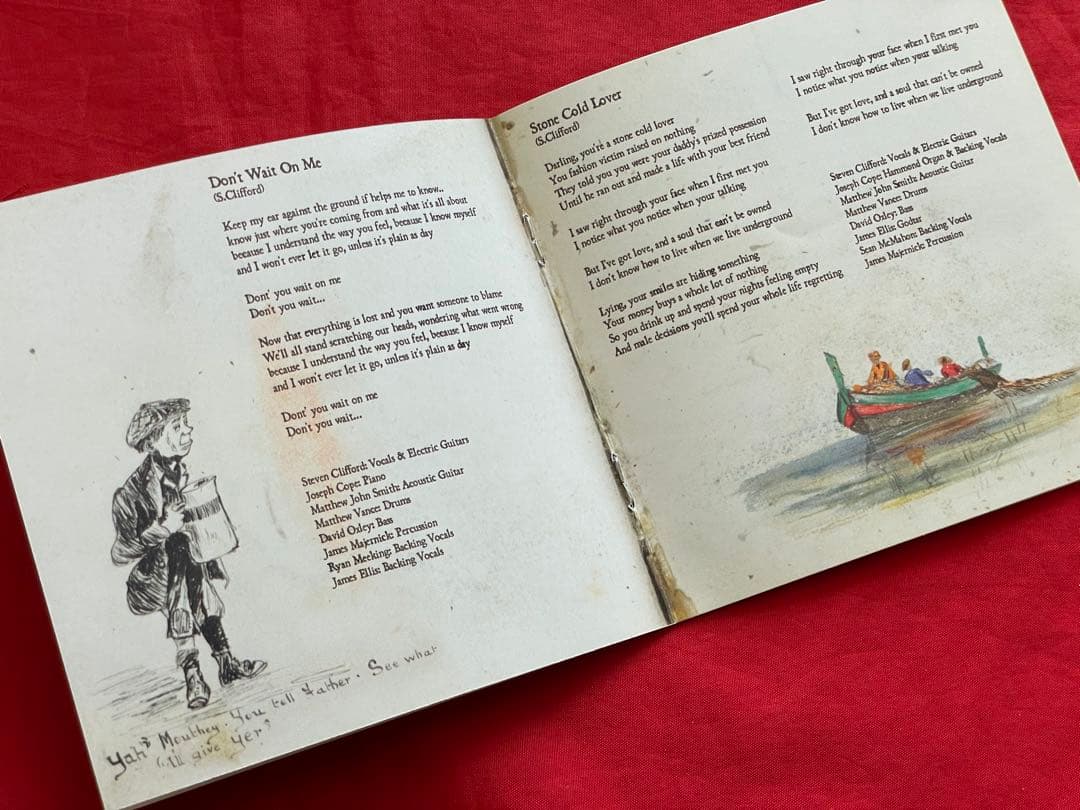 Don't Wait On Me
(S.Clifford)
Keep my ear against the ground if helps me to know..
know just where you're coming from and what it's all about
because I understand the way you feel, because I know myself
and I won't ever let it go, unless it's plain as day
Dont' you wait on me
Don't you wait...
Now that everything is lost and you want someone to blame
We'll all stand scratching our heads, wondering what went wrong
because I understand the way you feel, because I know myself
and I won't ever let it go, unless it's plain as day
Dont' you wait on me
Don't you wait...
Steven Clifford: Vocals & Electric Guitars
Joseph Cope: Piano
Matthew John Smith: Acoustic Guitar
Matthew Vance: Drums
David Oxley: Bass
James Majernick: Percussion
Ryan Meeking: Backing Vocals
James Ellis: Backing Vocals
Yah? Mouthey. You tell father. See what
I'll give yer?
Stone Cold Lover
(S.Clifford)
Darling, you're a stone cold lover
You fashion victim raised on nothing
They told you you were your daddy's prized possession
Until he ran out and made a life with your best friend
I saw right through your face when I first met you
I notice what you notice when your talking
But I've got love, and a soul that can't be owned
I don't know how to live when we live underground
Lying, your smiles are hiding something
Your money buys a whole lot of nothing
So you drink up and spend your nights feeling empty
And make decisions you'll spend your whole life regretting
I saw right through your face when I first met you
I notice what you notice when your talking
But I've got love, and a soul that can't be owned
I don't know how to live when we live underground
Steven Clifford: Vocals & Electric Guitars
Joseph Cope: Hammond Organ & Backing Vocals
Matthew John Smith: Acoustic Guitar
Matthew Vance: Drums
David Oxley: Bass
James Ellis: Guitar
Sean McMahon: Backing Vocals
James Majernick: Percussion